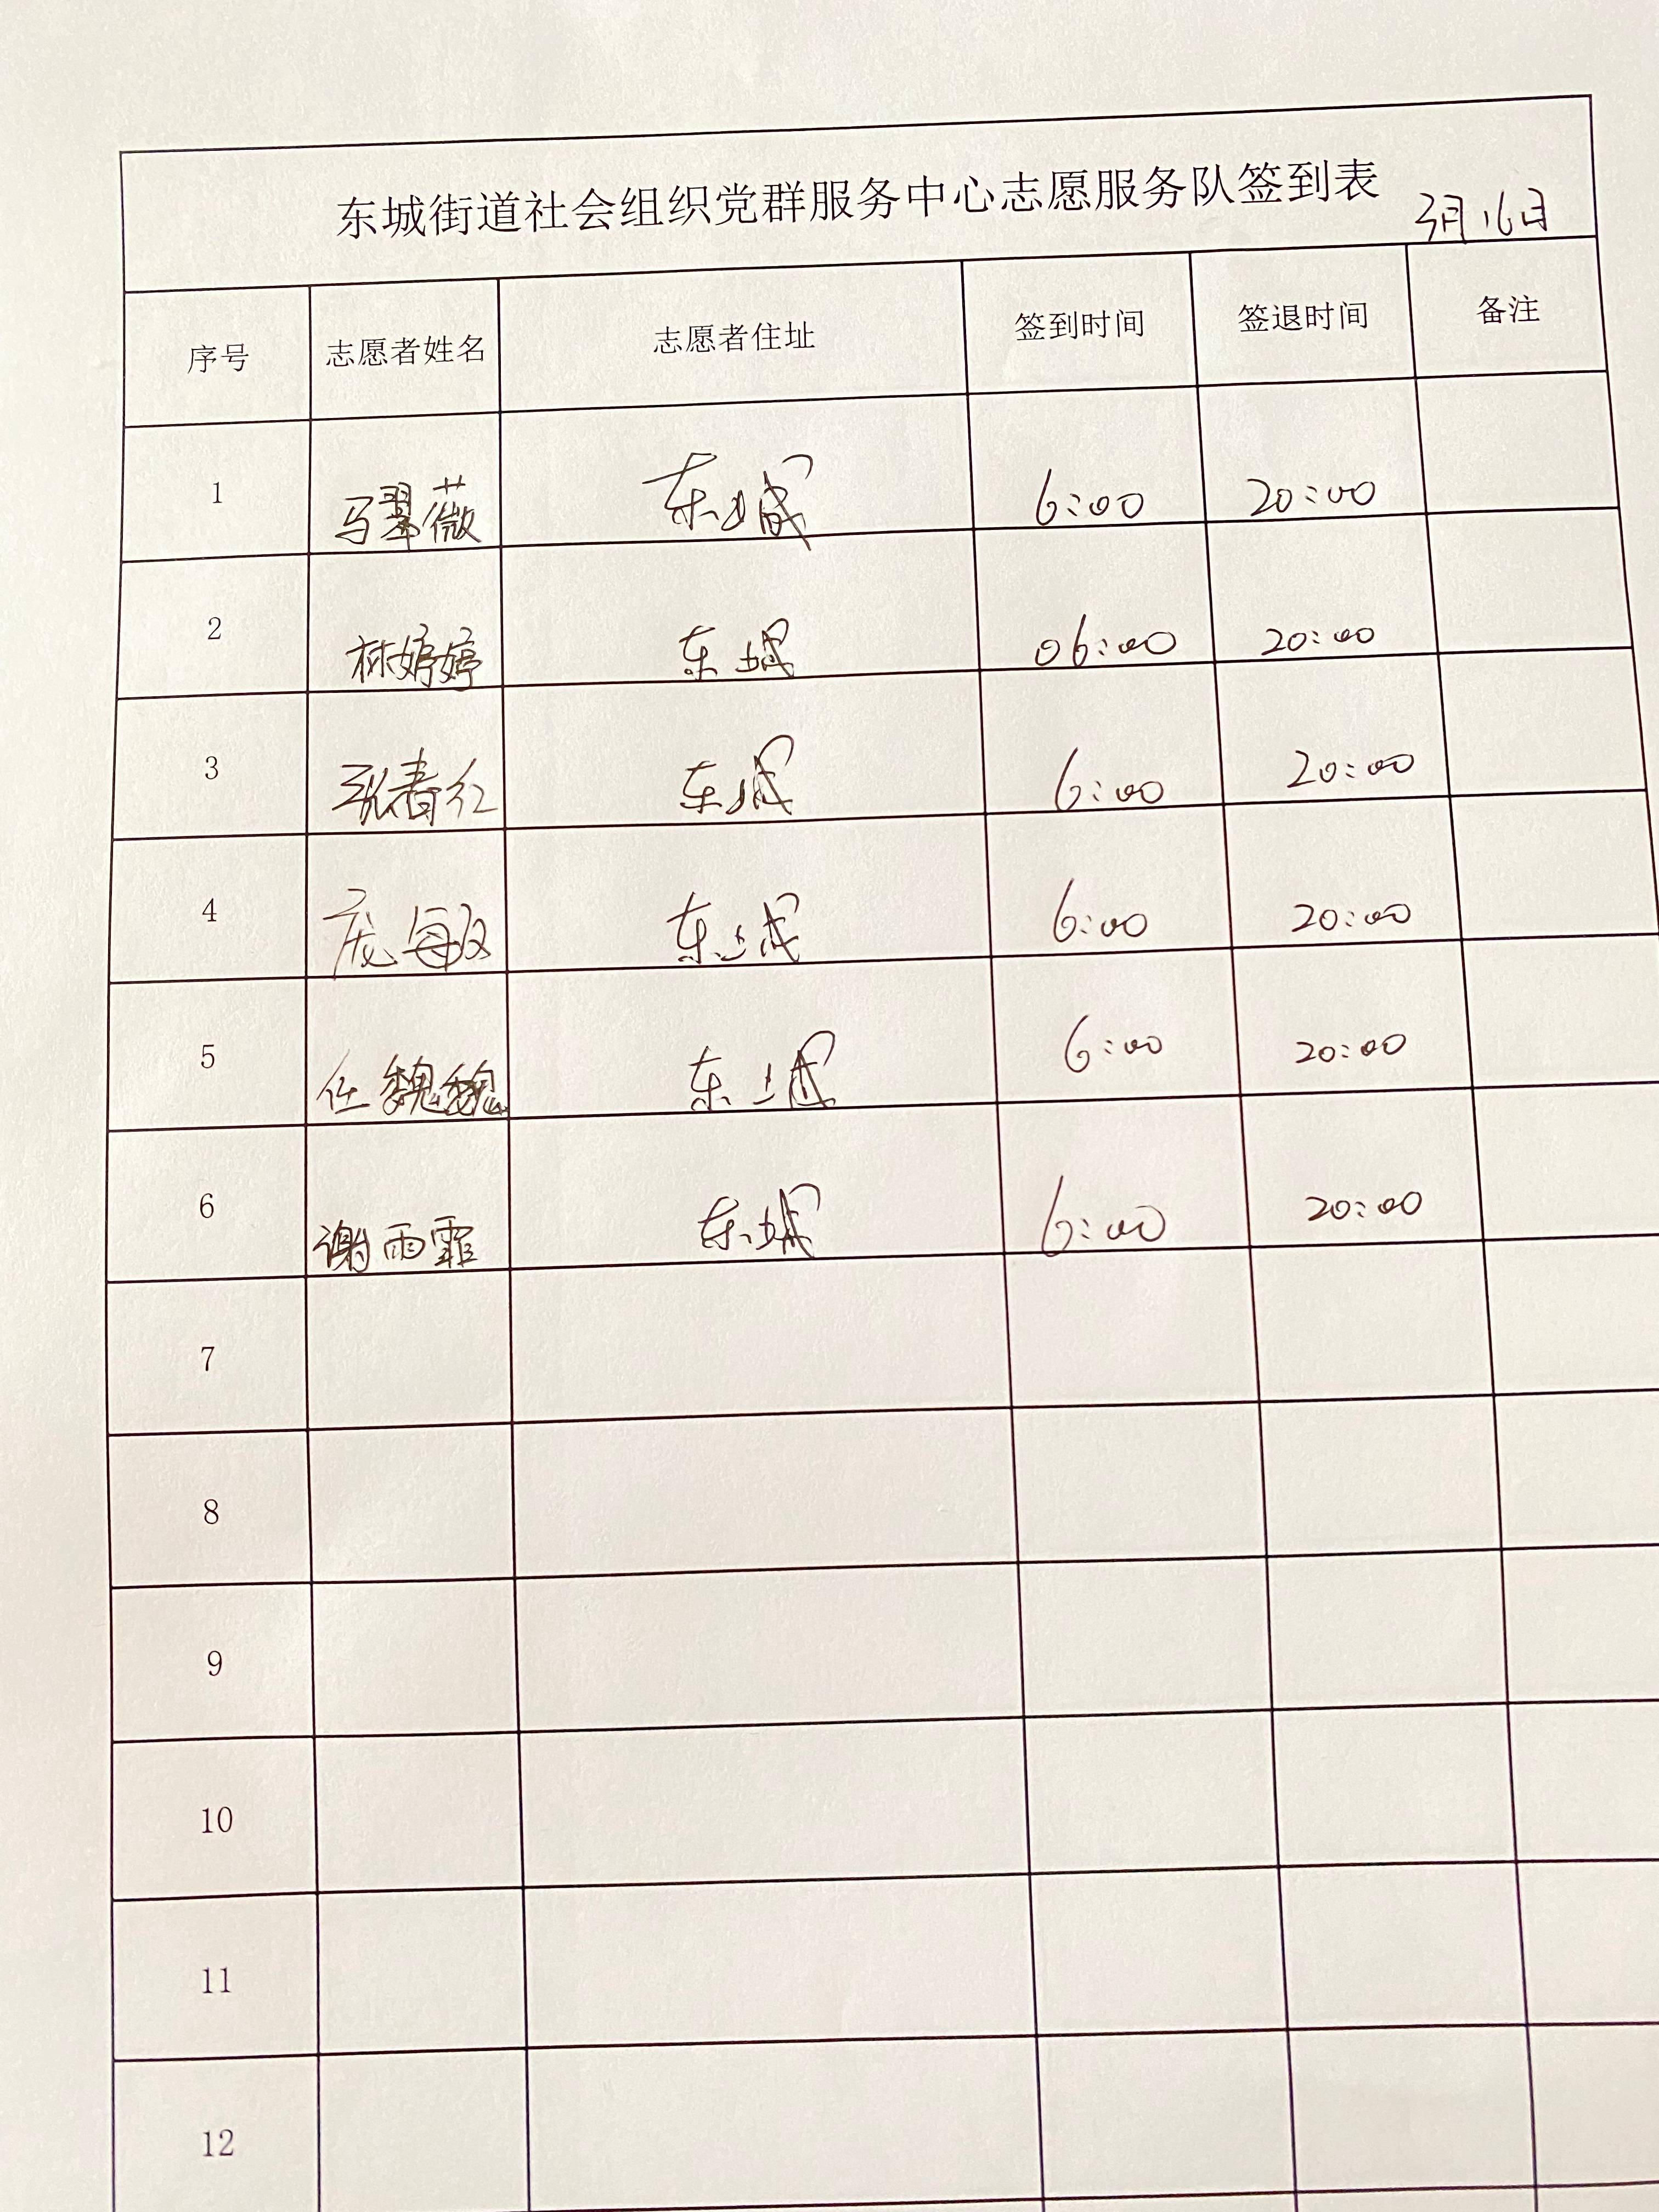 东城街道社会组织党群服务中心志愿服务队签到表
3月16日
序号 志愿者姓名 志愿者住址 签到时间 签退时间 备注
1 马翠薇 东城 6:00 20:00
2 林婷婷 东城 06:00 20:00
3 张春红 东城 6:00 20:00
4 庞敏 东城 6:00 20:00
5 任魏魏 东城 6:00 20:00
6 谢雨霏 东城 6:00 20:00
7
8
9
10
11
12